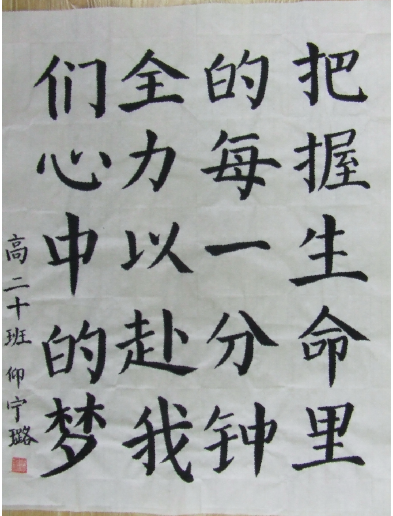 把握生命里
的每一分钟
全力以赴我
们心中的梦
高二十班 仰宁璐